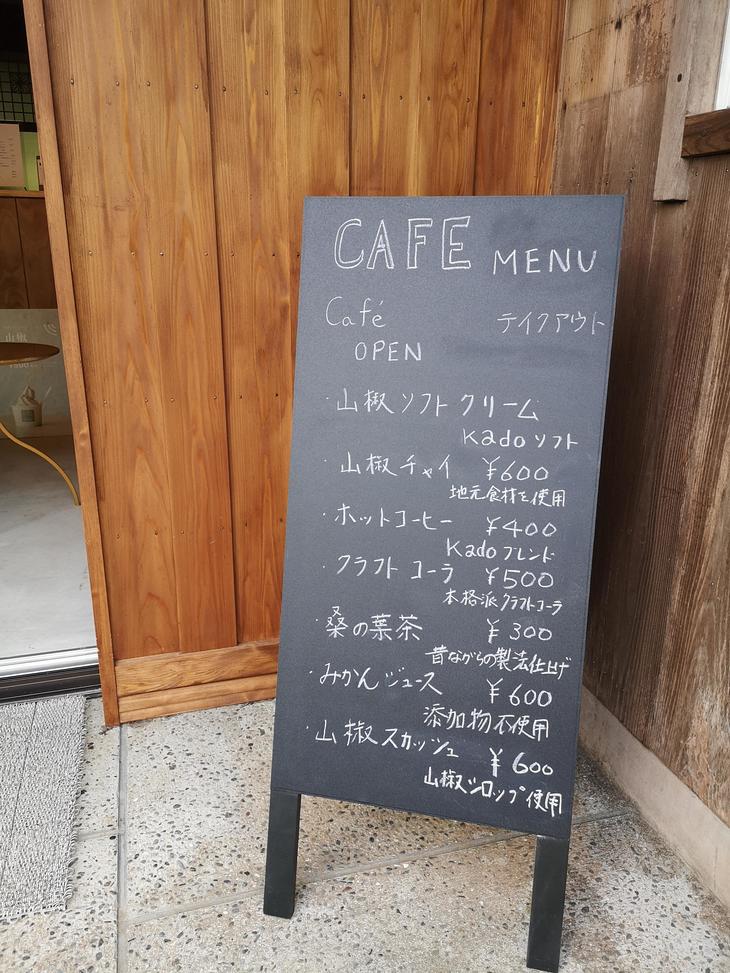 CAFE MENU
Café テイクアウト
OPEN
・山椒ソフトクリーム
Kadoソフト
・山椒チャイ ¥600
地元食材を使用
・ホットコーヒー ¥400
Kadoブレンド
・クラフトコーラ ¥500
本格派クラフトコーラ
・桑の葉茶 ¥300
昔ながらの製法仕上げ
・みかんジュース ¥600
添加物不使用
・山椒スカッシュ ¥600
山椒シロップ使用